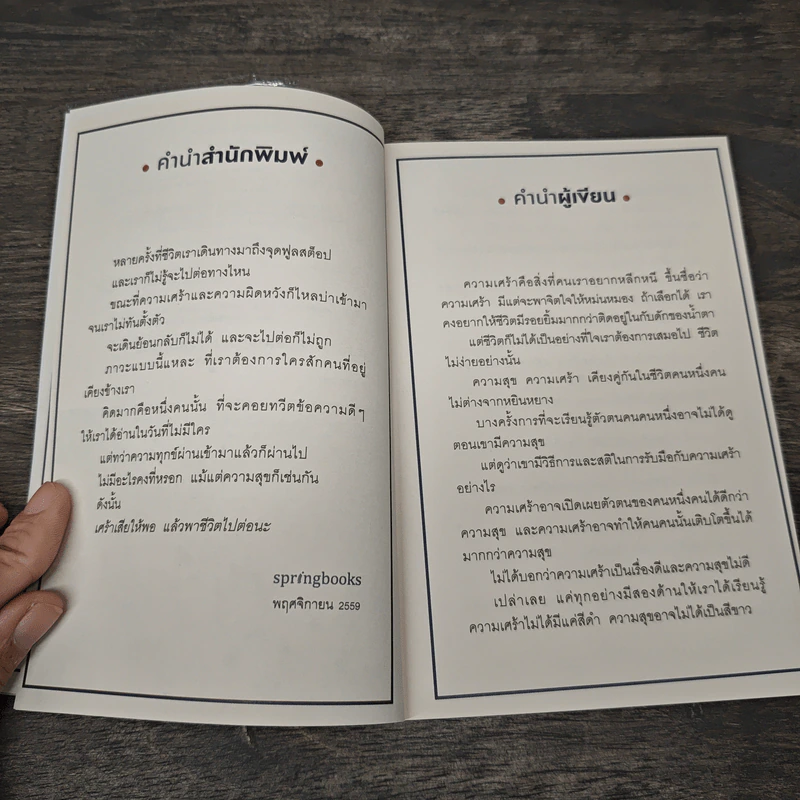 • คำนำสำนักพิมพ์ •
หลายครั้งที่ชีวิตเราเดินทางมาถึงจุดฟูลสต็อป
และเราก็ไม่รู้จะไปต่อทางไหน
ขณะที่ความเศร้าและความผิดหวังก็ไหลบ่าเข้ามา
จนเราไม่ทันตั้งตัว
จะเดินย้อนกลับก็ไม่ได้ และจะไปต่อก็ไม่ถูก
ภาวะแบบนี้แหละ ที่เราต้องการใครสักคนที่อยู่
เคียงข้างเรา
คิดมากคือหนึ่งคนนั้น ที่จะคอยทวีตข้อความดีๆ
ให้เราได้อ่านในวันที่ไม่มีใคร
แต่ทว่าความทุกข์ผ่านเข้ามาแล้วก็ผ่านไป
ไม่มีอะไรคงที่หรอก แม้แต่ความสุขก็เช่นกัน
ดังนั้น
เศร้าเสียให้พอ แล้วพาชีวิตไปต่อนะ
springbooks
พฤศจิกายน 2559
• คำนำผู้เขียน •
ความเศร้าคือสิ่งที่คนเราอยากหลีกหนี ขึ้นชื่อว่า
ความเศร้า มีแต่จะพาจิตใจให้หม่นหมอง ถ้าเลือกได้ เรา
คงอยากให้ชีวิตมีรอยยิ้มมากกว่าติดอยู่ในกับดักของน้ำตา
แต่ชีวิตก็ไม่ได้เป็นอย่างที่ใจเราต้องการเสมอไป ชีวิต
ไม่ง่ายอย่างนั้น
ความสุข ความเศร้า เคียงคู่กันในชีวิตคนหนึ่งคน
ไม่ต่างจากหยินหยาง
บางครั้งการที่จะเรียนรู้ตัวตนคนคนหนึ่งอาจไม่ได้ดู
ตอนเขามีความสุข
แต่ดูว่าเขามีวิธีการและสติในการรับมือกับความเศร้า
อย่างไร
ความเศร้าอาจเปิดเผยตัวตนของคนหนึ่งคนได้ดีกว่า
ความสุข และความเศร้าอาจทำให้คนคนนั้นเติบโตขึ้นได้
มากกว่าความสุข
ไม่ได้บอกว่าความเศร้าเป็นเรื่องดีและความสุขไม่ดี
เปล่าเลย แค่ทุกอย่างมีสองด้านให้เราได้เรียนรู้
ความเศร้าไม่ได้มีแค่สีดำ ความสุขอาจไม่ได้เป็นสีขาว